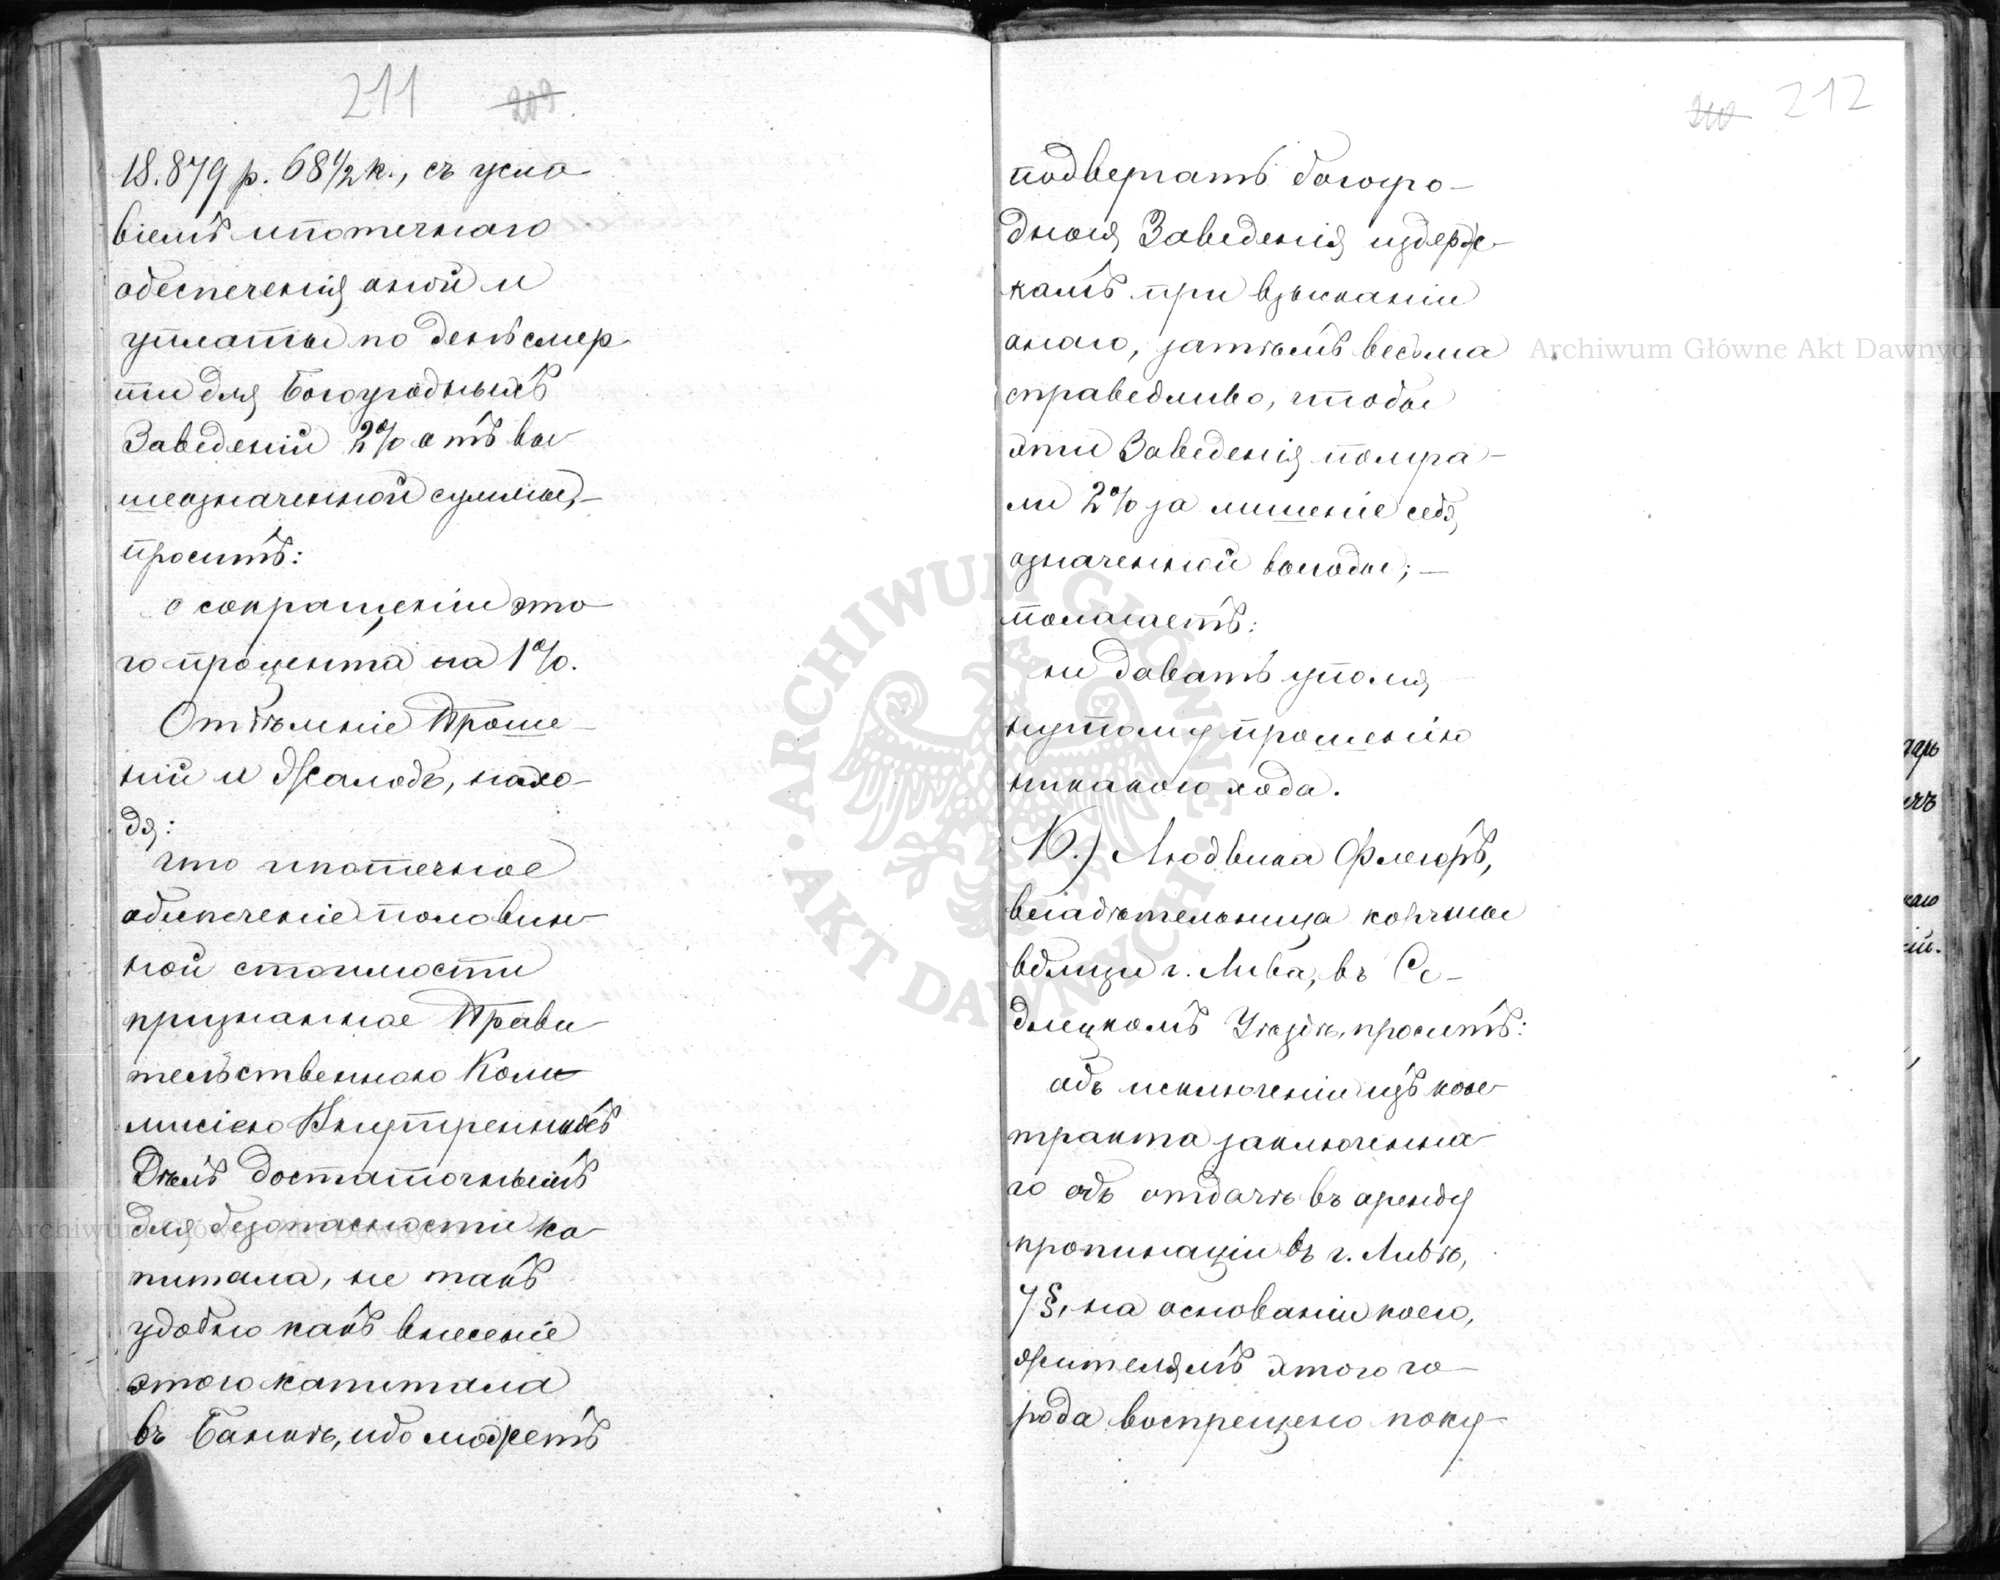 211 209
18.879 р. 68 1/2 к., съ усло
віемъ ипотечнаго
обеспеченія оной и
уплаты по день смер
ти для Богоугодныхъ
Заведеній 2% отъ вы
шеозначенной суммы,—
проситъ:
о сокращеніи это
го процента на 1%.
Отдѣленіе Проше—
ній и Жалобъ, нахо—
дя:
что ипотечное
обеспеченіе половин
ной стоимости
признанное Прави
тельственною Ком
мисіею Внутреннихъ
Дѣлъ достаточнымъ
для безопасности ка
питала, не такъ
удобно какъ внесеніе
этого капитала
въ Банкъ, ибо можетъ
210 212
подвергать богоуго—
дныя Заведенія издерж—
камъ при взысканіи
онаго, затѣмъ весьма
справедливо, чтобы
эти Заведенія получа—
ли 2% за лишеніе себя
означенной выгоды;—
полагаетъ:
не давать упомя
нутому прошенію
никакого хода.
16.) Людвика Флегоръ,
владѣтельница корчмы
вблизи г. Лива, въ Се—
длецкомъ Уѣздѣ, проситъ:
объ исключеніи изъ кон
тракта заключенна
го объ отдачѣ въ аренду
пропинаціи въ г. Ливѣ,
7 §, на основаніи коего,
жителямъ этого го—
рода воспрещено поку—
ARCHIWUM GŁÓWNE AKT DAWNYCH
Archiwum Główne Akt Dawnych
Archiwum Główne Akt Dawnych